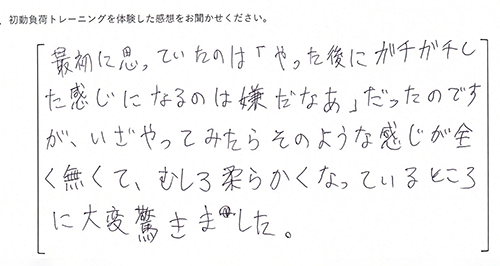 、初動負荷トレーニングを体験した感想をお聞かせください。
最初に思っていたのは「やった後にガチガチし
た感じになるのは嫌だなあ」だったのです
が、いざやってみたらそのような感じが全
く無くて、むしろ柔らかくなっているところ
に大変驚きました。